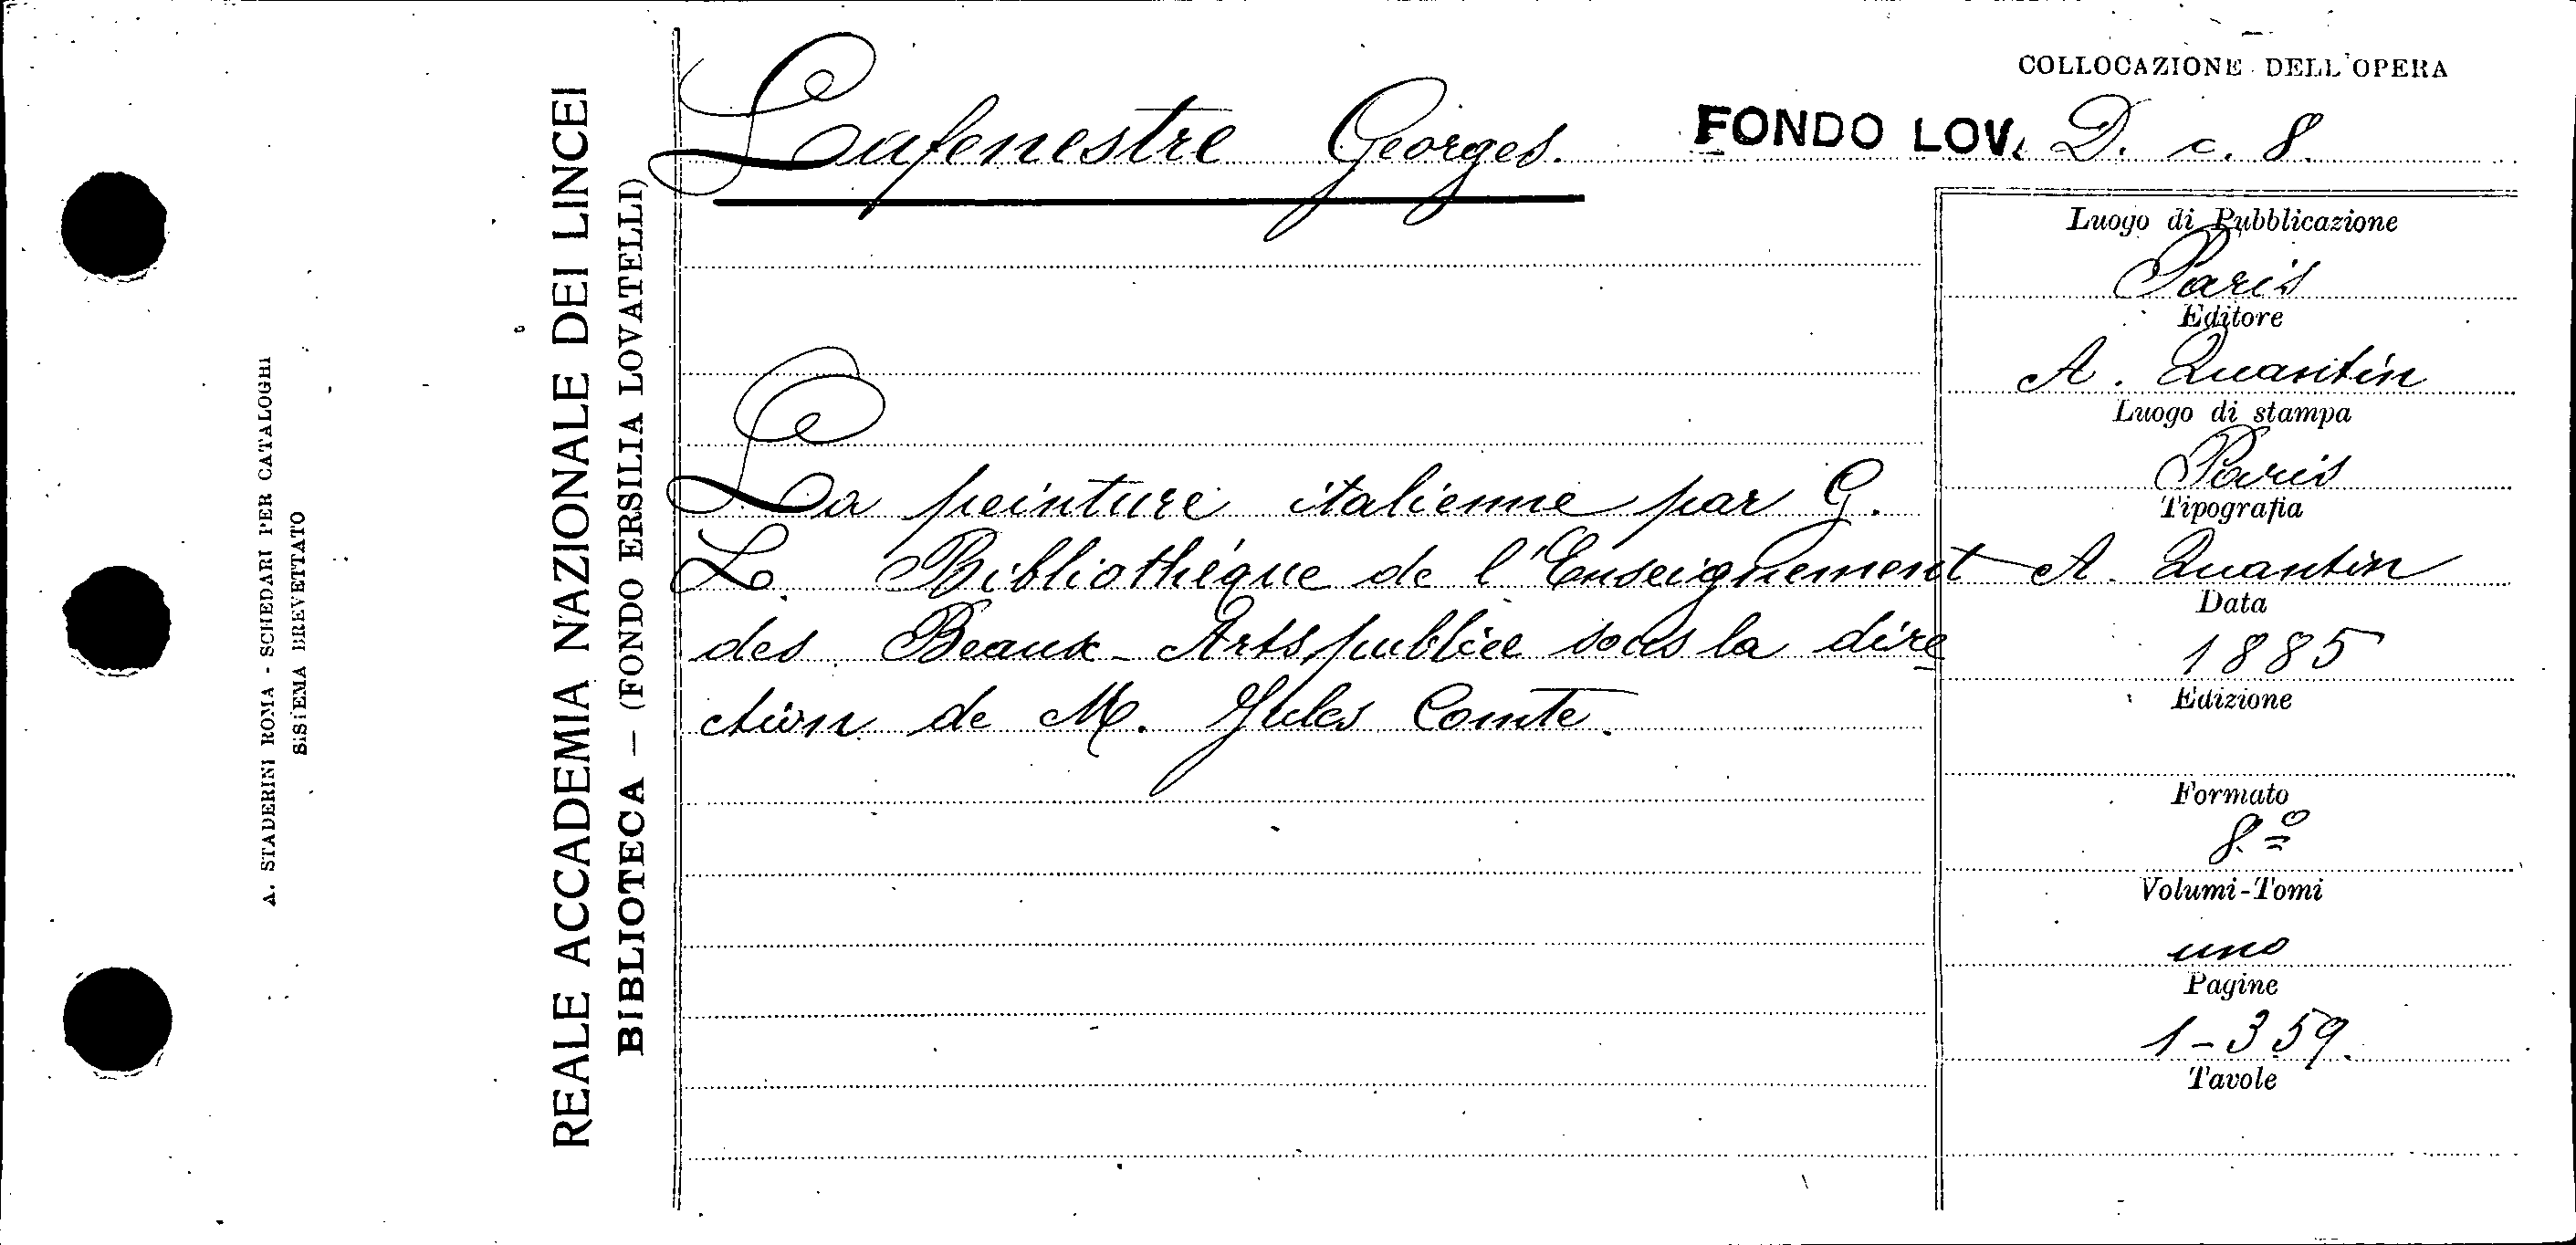 A. STADERINI ROMA - SCHEDARI PER CATALOGHI
SISTEMA BREVETTATO
REALE ACCADEMIA NAZIONALE DEI LINCEI
BIBLIOTECA — (FONDO ERSILIA LOVATELLI)
COLLOCAZIONE DELL'OPERA
Lafenestre Georges. FONDO LOV. D. c. 8.
La peinture italienne par G.
L. Bibliothéque de l'Enseignement
des Beaux-Arts publiée sous la dire
ction de M. Jules Comte.
Luogo di Pubblicazione
Paris
Editore
A. Quantin
Luogo di stampa
Paris
Tipografia
A. Quantin
Data
1885
Edizione
Formato
8º
Volumi-Tomi
uno
Pagine
1-359.
Tavole